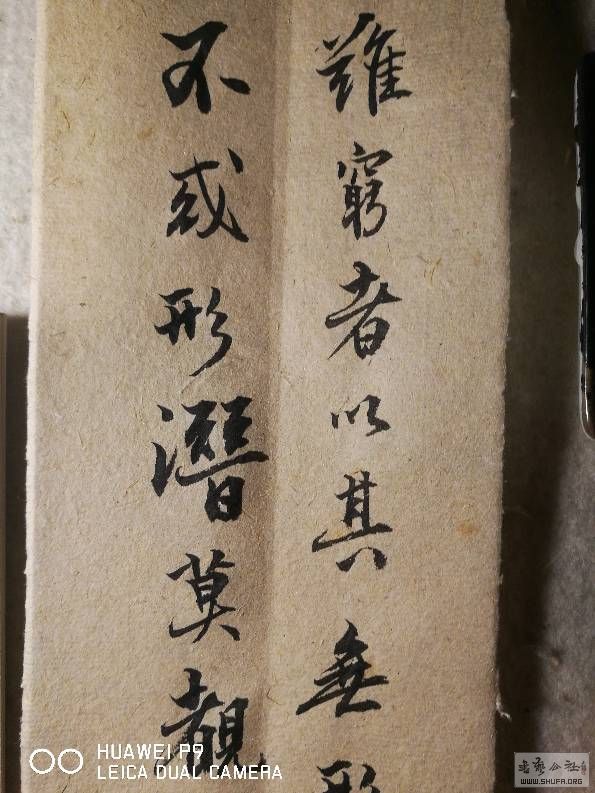 難窮者以其無形
不或形潛莫覩
HUAWEI P9
LEICA DUAL CAMERA
书艺公社
WWW.SHUFA.ORG